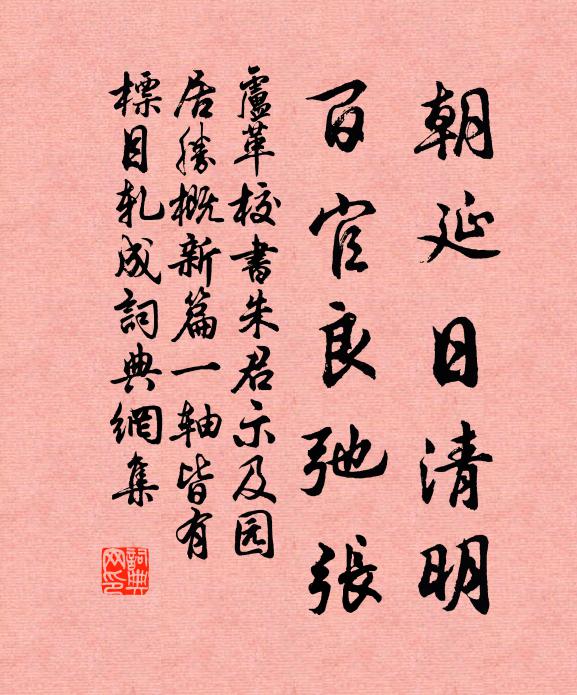 朝延日清明
百官良弛張
盧革校書朱君示及园
居勝概新篇一轴皆有
標目軋成詞典網集
詞典网印